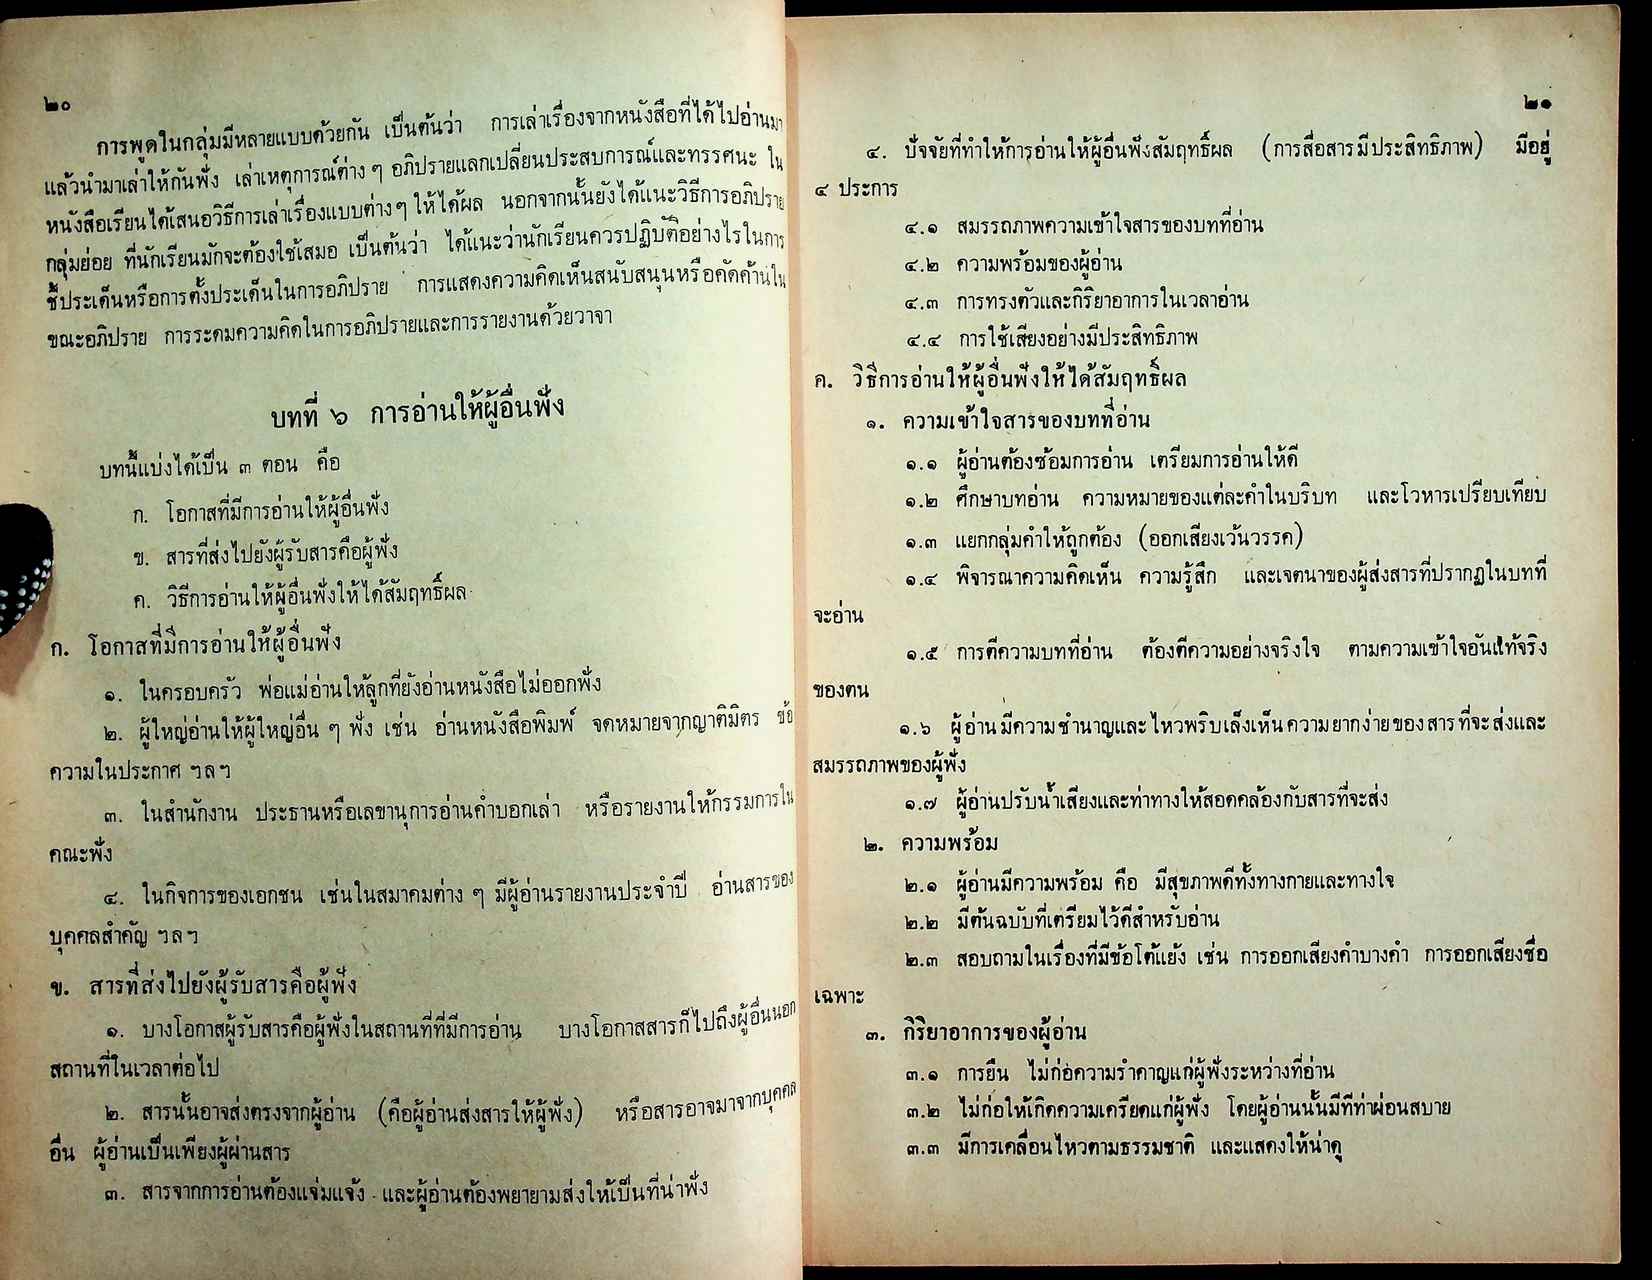 ๒๐
การพูดในกลุ่มมีหลายแบบด้วยกัน เป็นต้นว่า การเล่าเรื่องจากหนังสือที่ได้ไปอ่านมา
แล้วนำมาเล่าให้กันฟัง เล่าเหตุการณ์ต่าง ๆ อภิปรายแลกเปลี่ยนประสบการณ์และทรรศนะ ใน
หนังสือเรียนได้เสนอวิธีการเล่าเรื่องแบบต่าง ๆ ให้ได้ผล นอกจากนั้นยังได้แนะวิธีการอภิปราย
กลุ่มย่อย ที่นักเรียนมักจะต้องใช้เสมอ เป็นต้นว่า ได้แนะว่านักเรียนควรปฏิบัติอย่างไรในการ
ชี้ประเด็นหรือการตั้งประเด็นในการอภิปราย การแสดงความคิดเห็นสนับสนุนหรือคัดค้านใน
ขณะอภิปราย การระดมความคิดในการอภิปรายและการรายงานด้วยวาจา
บทที่ ๖ การอ่านให้ผู้อื่นฟัง
บทนี้แบ่งได้เป็น ๓ ตอน คือ
ก. โอกาสที่มีการอ่านให้ผู้อื่นฟัง
ข. สารที่ส่งไปยังผู้รับสารคือผู้ฟัง
ค. วิธีการอ่านให้ผู้อื่นฟังให้ได้สัมฤทธิ์ผล
ก. โอกาสที่มีการอ่านให้ผู้อื่นฟัง
๑. ในครอบครัว พ่อแม่อ่านให้ลูกที่ยังอ่านหนังสือไม่ออกฟัง
๒. ผู้ใหญ่อ่านให้ผู้ใหญ่อื่น ๆ ฟัง เช่น อ่านหนังสือพิมพ์ จดหมายจากญาติมิตร ข้อ
ความในประกาศ ฯลฯ
๓. ในสำนักงาน ประธานหรือเลขานุการอ่านคำบอกเล่า หรือรายงานให้กรรมการใน
คณะฟัง
๔. ในกิจการของเอกชน เช่นในสมาคมต่าง ๆ มีผู้อ่านรายงานประจำปี อ่านสารของ
บุคคลสำคัญ ฯลฯ
ข. สารที่ส่งไปยังผู้รับสารคือผู้ฟัง
๑. บางโอกาสผู้รับสารคือผู้ฟังในสถานที่ที่มีการอ่าน บางโอกาสสารก็ไปถึงผู้อื่นนอก
สถานที่ในเวลาต่อไป
๒. สารนั้นอาจส่งตรงจากผู้อ่าน (คือผู้อ่านส่งสารให้ผู้ฟัง) หรือสารอาจมาจากบุคคล
อื่น ผู้อ่านเป็นเพียงผู้ผ่านสาร
๓. สารจากการอ่านต้องแจ่มแจ้ง และผู้อ่านต้องพยายามส่งให้เป็นที่น่าฟัง
๒๑
๔. ปัจจัยที่ทำให้การอ่านให้ผู้อื่นฟังสัมฤทธิ์ผล (การสื่อสารมีประสิทธิภาพ) มีอยู่
๔ ประการ
๔.๑ สมรรถภาพความเข้าใจสารของบทที่อ่าน
๔.๒ ความพร้อมของผู้อ่าน
๔.๓ การทรงตัวและกิริยาอาการในเวลาอ่าน
๔.๔ การใช้เสียงอย่างมีประสิทธิภาพ
ค. วิธีการอ่านให้ผู้อื่นฟังให้ได้สัมฤทธิ์ผล
๑. ความเข้าใจสารของบทที่อ่าน
๑.๑ ผู้อ่านต้องซ้อมการอ่าน เตรียมการอ่านให้ดี
๑.๒ ศึกษาบทอ่าน ความหมายของแต่ละคำในบริบท และโวหารเปรียบเทียบ
๑.๓ แยกกลุ่มคำให้ถูกต้อง (ออกเสียงเว้นวรรค)
๑.๔ พิจารณาความคิดเห็น ความรู้สึก และเจตนาของผู้ส่งสารที่ปรากฏในบทที่
จะอ่าน
๑.๕ การตีความบทที่อ่าน ต้องตีความอย่างจริงใจ ตามความเข้าใจอันแท้จริง
ของตน
๑.๖ ผู้อ่านมีความชำนาญและไหวพริบเล็งเห็นความยากง่ายของสารที่จะส่งและ
สมรรถภาพของผู้ฟัง
๑.๗ ผู้อ่านปรับน้ำเสียงและท่าทางให้สอดคล้องกับสารที่จะส่ง
๒. ความพร้อม
๒.๑ ผู้อ่านมีความพร้อม คือ มีสุขภาพดีทั้งทางกายและทางใจ
๒.๒ มีต้นฉบับที่เตรียมไว้ดีสำหรับอ่าน
๒.๓ สอบถามในเรื่องที่มีข้อโต้แย้ง เช่น การออกเสียงคำบางคำ การออกเสียงชื่อ
เฉพาะ
๓. กิริยาอาการของผู้อ่าน
๓.๑ การยืน ไม่ก่อความรำคาญแก่ผู้ฟังระหว่างที่อ่าน
๓.๒ ไม่ก่อให้เกิดความเครียดแก่ผู้ฟัง โดยผู้อ่านนั้นมีทีท่าผ่อนสบาย
๓.๓ มีการเคลื่อนไหวตามธรรมชาติ และแสดงให้น่าดู